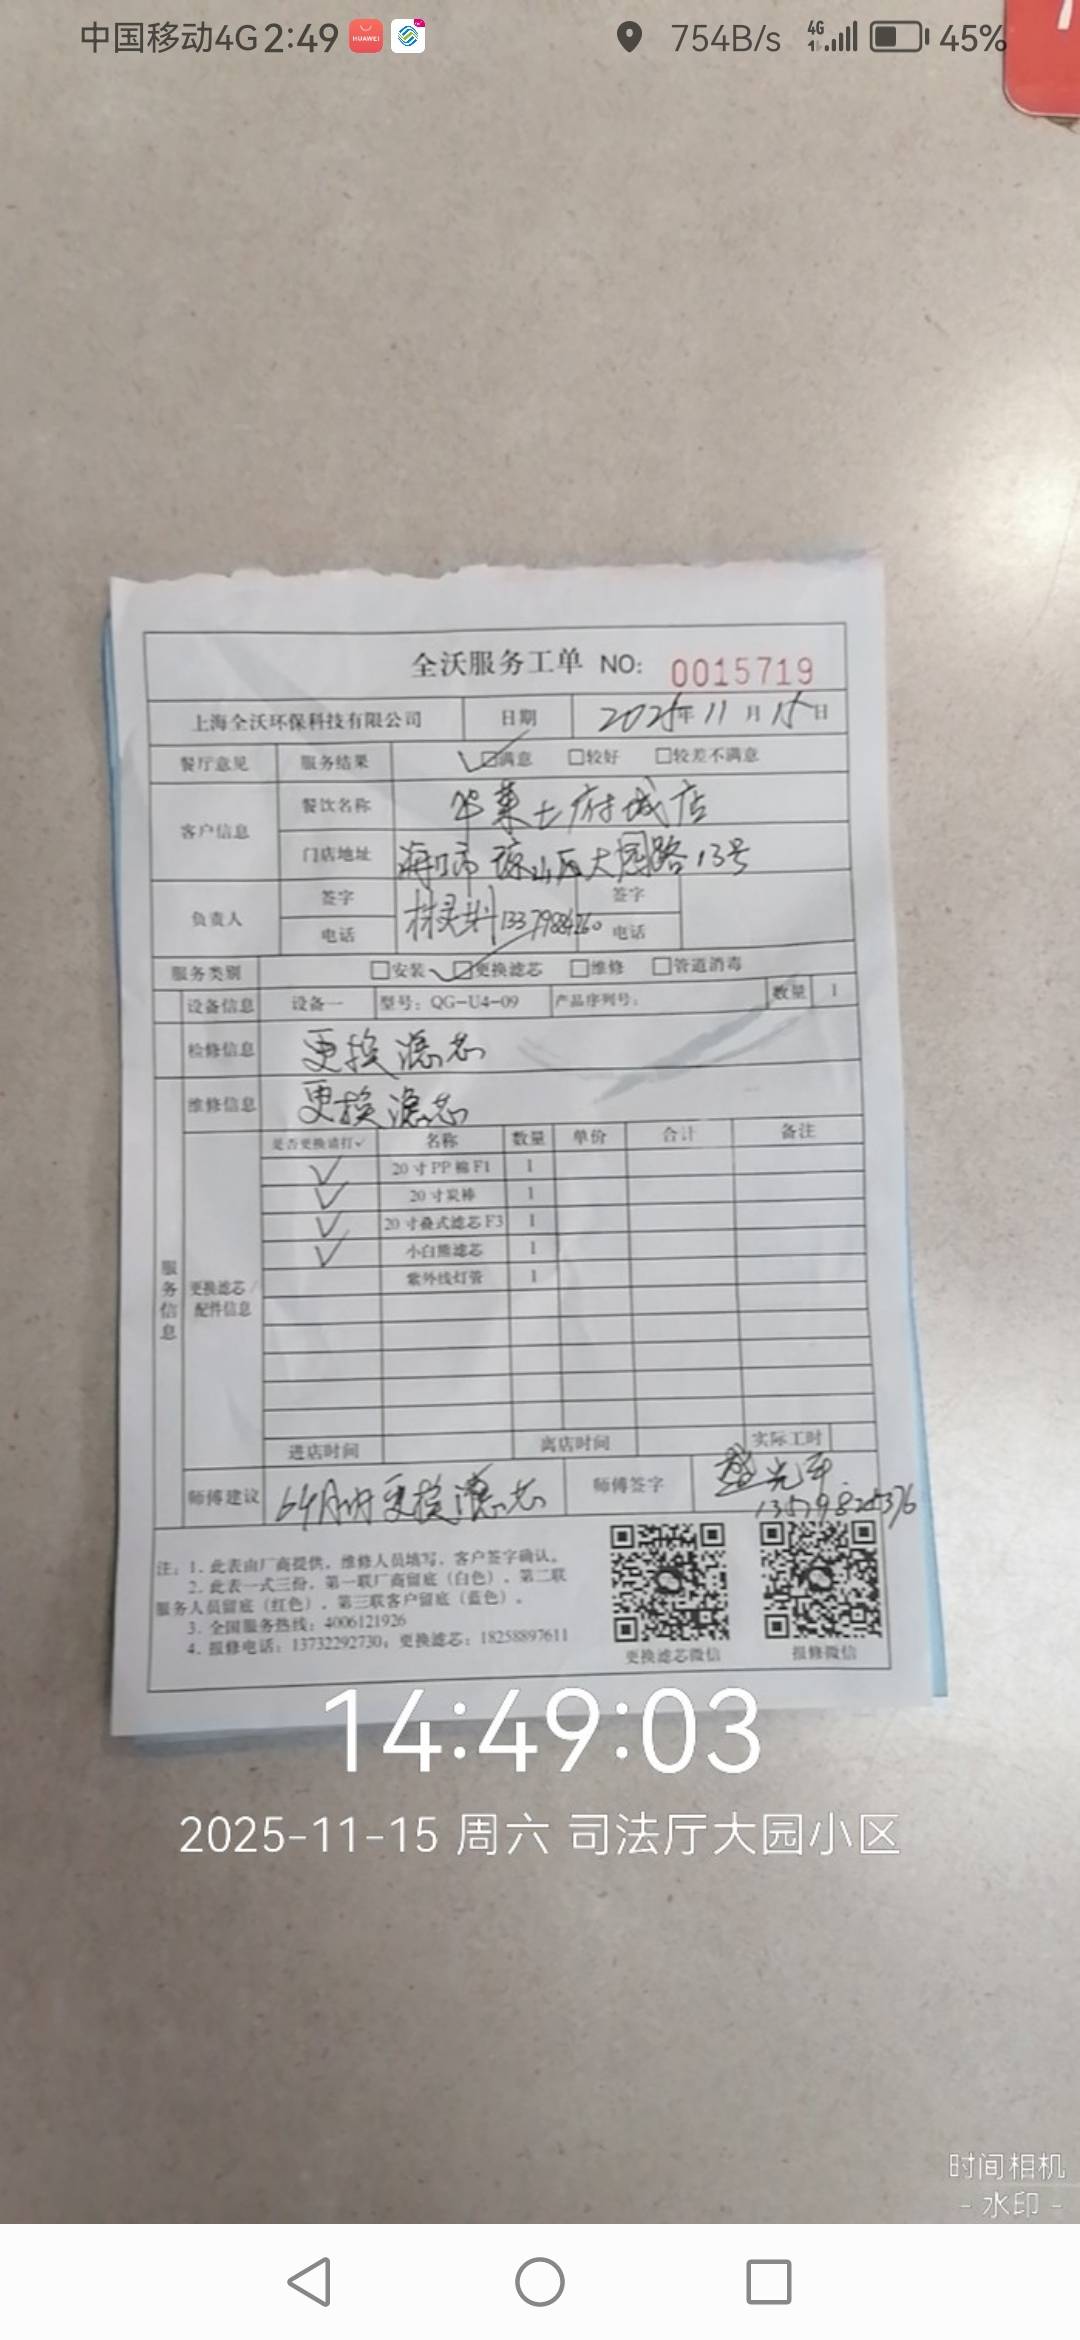 中国移动4G 2:49 HUAWEI 754B/s 4G 45%
全沃服务工单 NO: 0015719
上海全沃环保科技有限公司 日期 2025年11月15日
餐厅意见 服务结果 ☑满意 □较好 □较差不满意
客户信息 餐饮名称 华莱士府城店
门店地址 海口市琼山区大园路13号
负责人 签字 签字
电话 电话
服务类别 □安装 ☑更换滤芯 □维修 □管道消毒
设备信息 设备一 型号：QG-U4-09 产品序列号： 数量 1
检修信息 更换滤芯
维修信息 更换滤芯
是否更换请打✓ 名称 数量 单价 合计 备注
✓ 20寸PP棉F1 1
✓ 20寸炭棒 1
✓ 20寸叠式滤芯F3 1
✓ 小白熊滤芯 1
紫外线灯管 1
服务信息
更换滤芯/
配件信息
进店时间 离店时间 实际工时
师傅建议 更换滤芯 师傅签字
注：1. 此表由厂商提供，维修人员填写，客户签字确认。
2. 此表一式三份，第一联厂商留底（白色），第二联
服务人员留底（红色），第三联客户留底（蓝色）。
3. 全国服务热线：4006121926
4. 报修电话：13732292730；更换滤芯：18258897611
更换滤芯微信 报修微信
14:49:03
2025-11-15 周六 司法厅大园小区
时间相机
- 水印 -